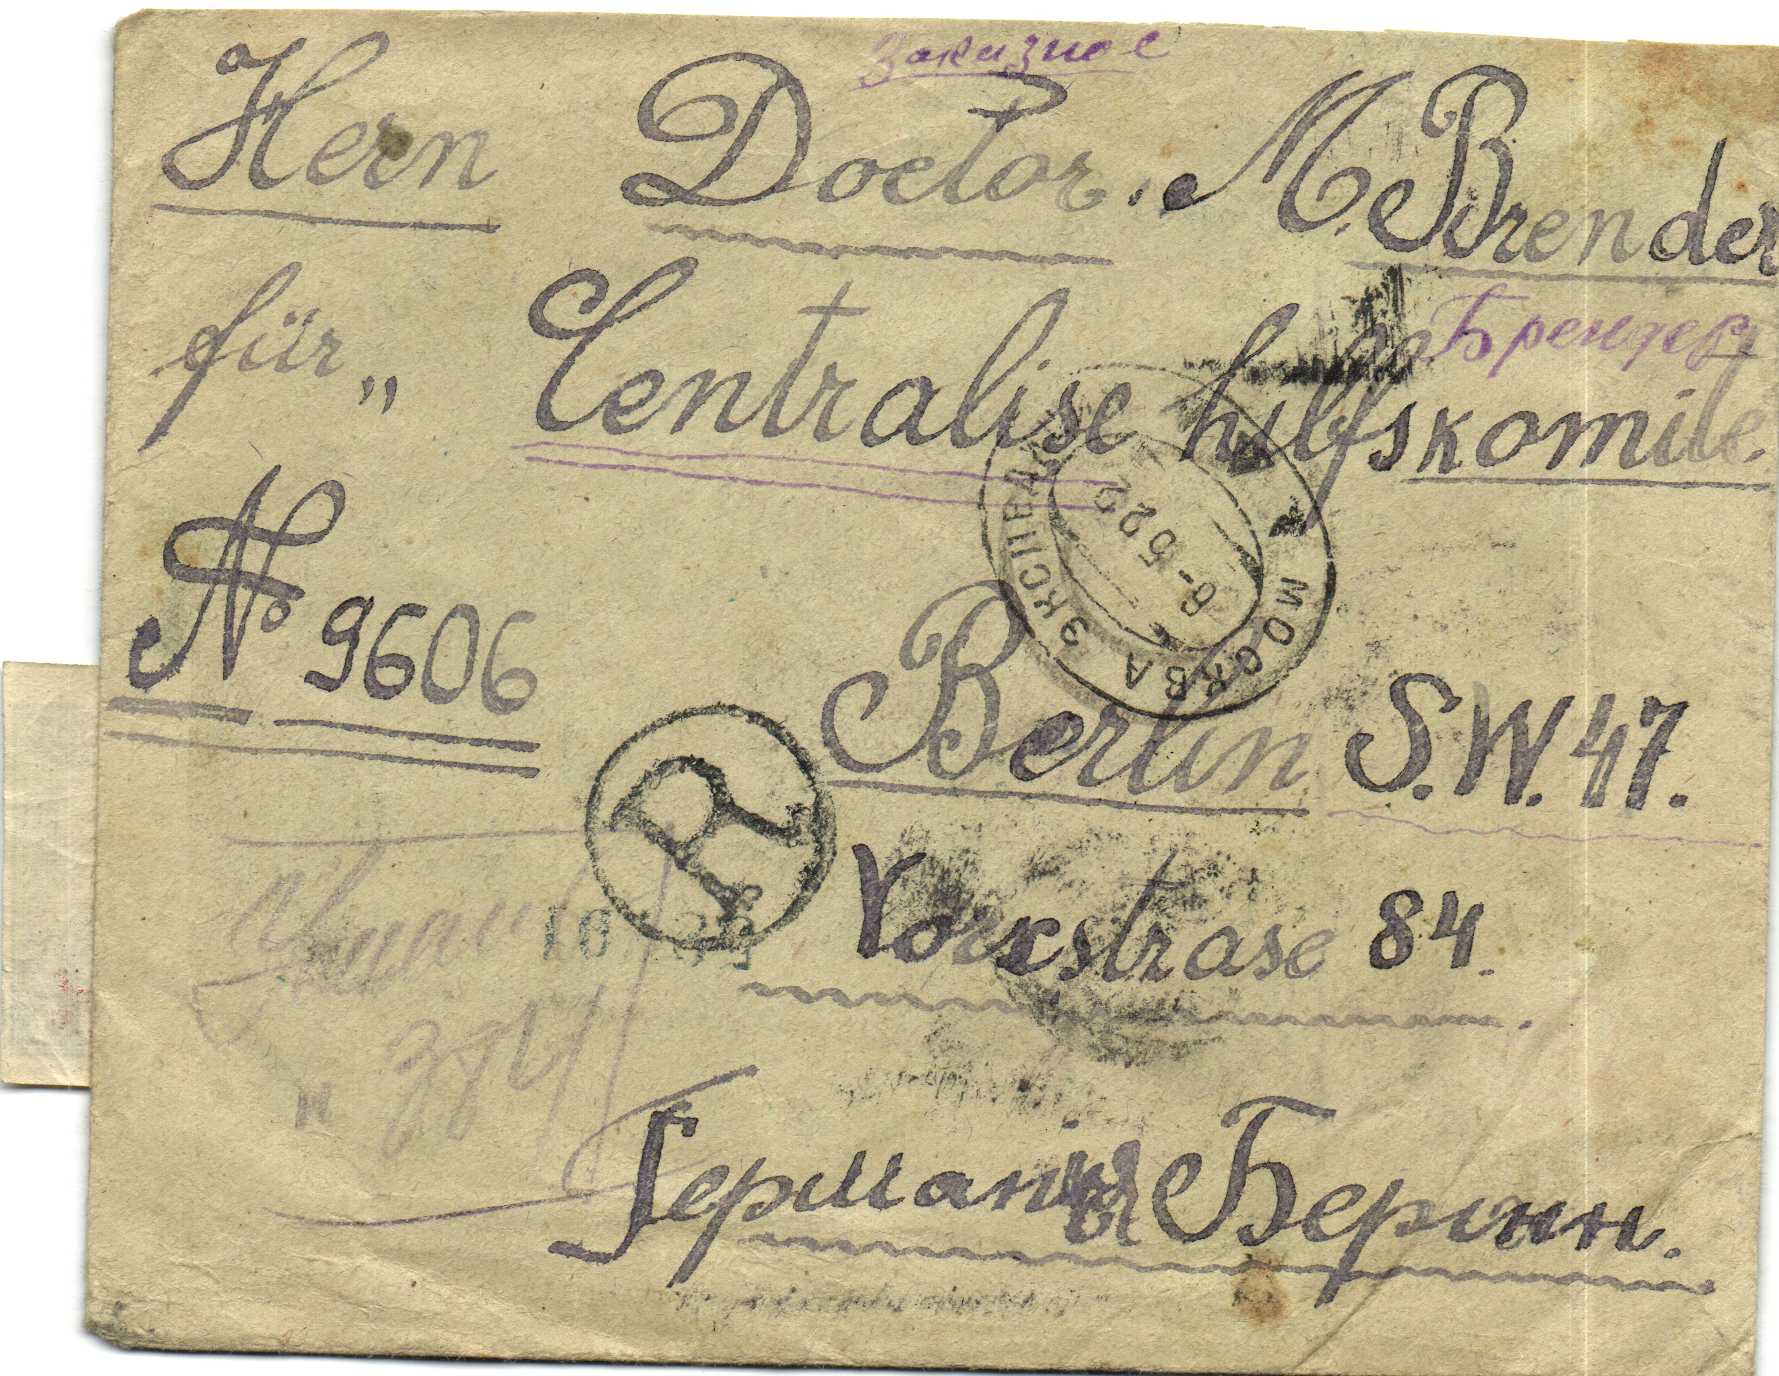 Заказное
Hern Doctor. M. Brender
Брендер
für „ Centralise hilfskomite.
№ 9606
МОСКВА ЭКСПЕДИЦ
6-5 22
Berlin S.W. 47.
R
Yorkstrase 84.
Германия Берлин.